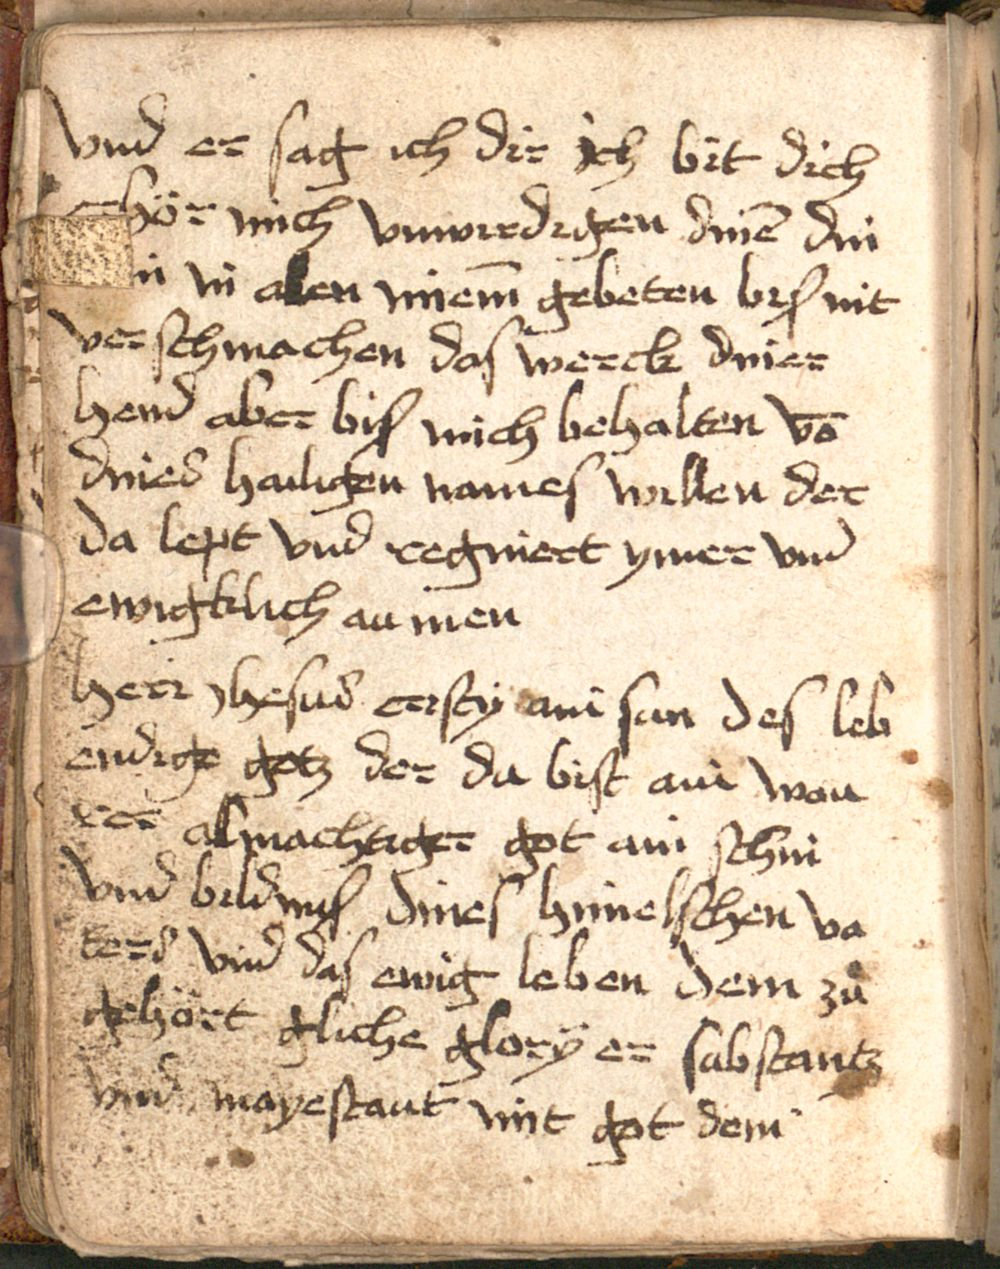 vnd er sag ich dir ich bit dich
erhör mich vnwirdigen dinē din
in allen minem̄ gebeten bis nit
verschmachen das werck diner
hend aber bis mich behalten vō
dines hailigen names willen der
da lept vnd regniert ymer vnd
ewigklich aumen
herr jhesus cristy ain sun des leb
endige gotz der da bist ain wau
rer almachtiger got ain schin
vnd bildnis dines himelschen va
ters vnd das ewig leben dem zů
gehört gliche glory er substantz
vnd mayestaut mit got dem